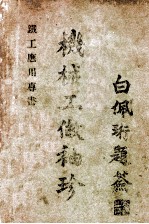 鐵工應用專書
機械工做袖珍
白佩珩題簽